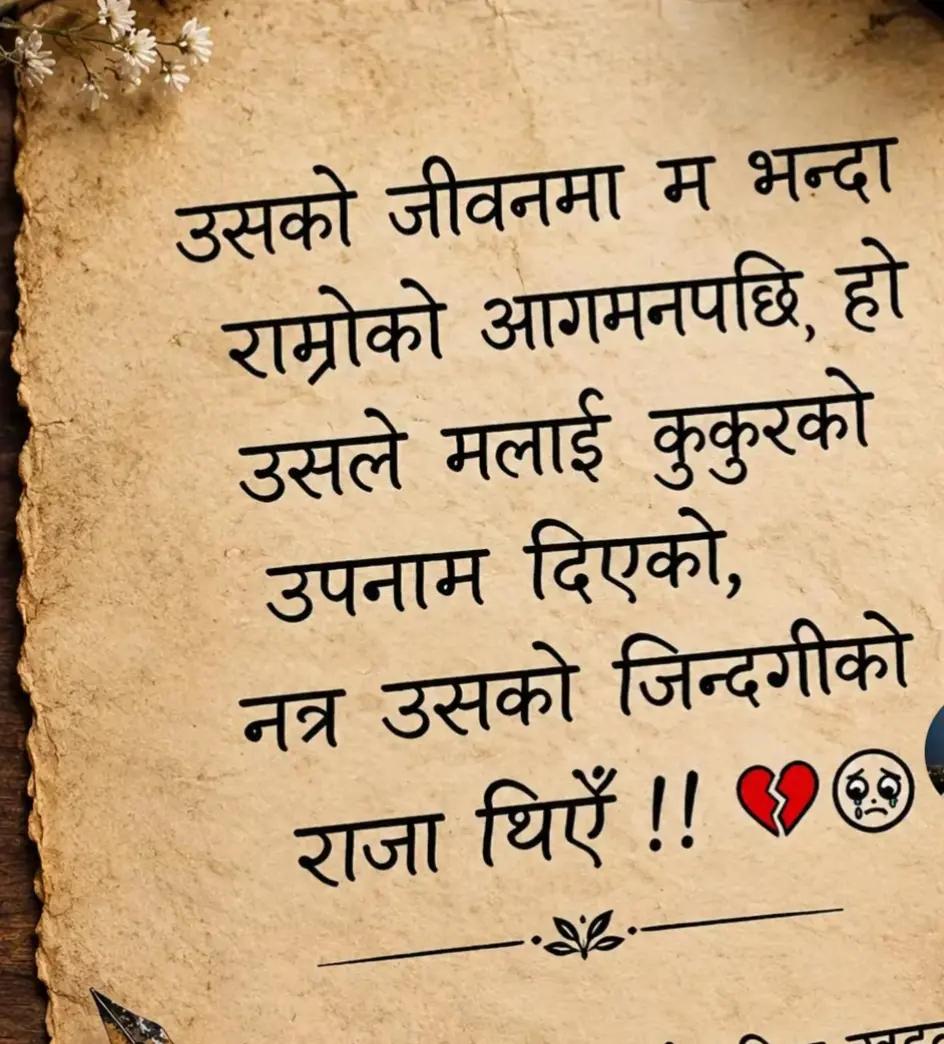 उसको जीवनमा म भन्दा
राम्रोको आगमनपछि, हो
उसले मलाई कुकुरको
उपनाम दिएको,
नत्र उसको जिन्दगीको
राजा थिएँ !! 💔🥹